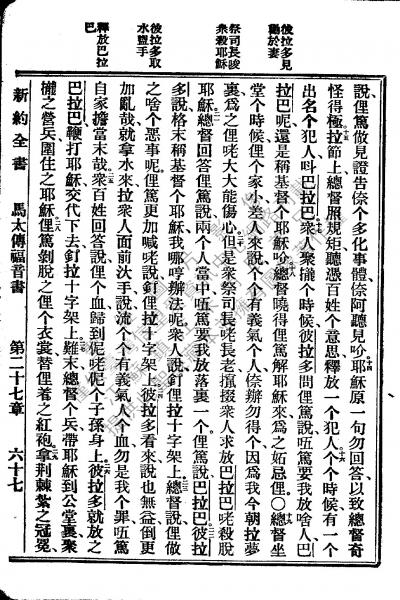 彼拉多見勸於妻
祭司長唆衆殺耶穌
彼拉多取水盥手
釋放巴拉巴
說、俚篤做見證告倷個多化事體、倷阿聽見吤、耶穌原一句勿回答、以致總督奇
怪得極、拉節上總督照規矩聽憑百姓個意思釋放一個犯人、個個時候有一個
出名個犯人叫巴拉巴、衆人聚攏個時候、彼拉多問俚篤說、唔篤要我放啥人、巴
拉巴呢、還是稱基督個耶穌吤、總督曉得俚篤解耶穌來爲之妬忌俚。○總督坐
堂個時候、俚個家小差人來說、個個有義氣人倷辦勿得個、因爲我今朝拉夢
裏爲之俚咾大大能傷心、但是衆祭司長咾長老攛掇衆人求放巴拉巴咾殺脫
耶穌、總督回答俚篤說、兩個人當中唔篤要我放落裏一個、俚篤說、巴拉巴、彼拉
多說、格末稱基督個耶穌我哪哼辦法呢、衆人說、釘俚拉十字架上、總督說、俚做
之啥個惡事呢、俚篤更加喊咾說、釘俚拉十字架上、彼拉多看來說也無益、倒更
加亂哉、就拿水來、拉衆人面前汏手說、流個個有義氣人個血勿是我個罪、唔篤
自家擔當末哉、衆百姓回答說、俚個血歸到伲咾伲個子孫身上、彼拉多就放之
巴拉巴、鞭打耶穌、交代下去釘拉十字架上、難末總督個兵帶耶穌到公堂裏、聚
攏之營兵圍住之耶穌、俚篤剝脫之俚個衣裳、替俚着之紅袍、拿荊棘紮之冠冕
新約全書 馬太傳福音書 第二十七章 六十七